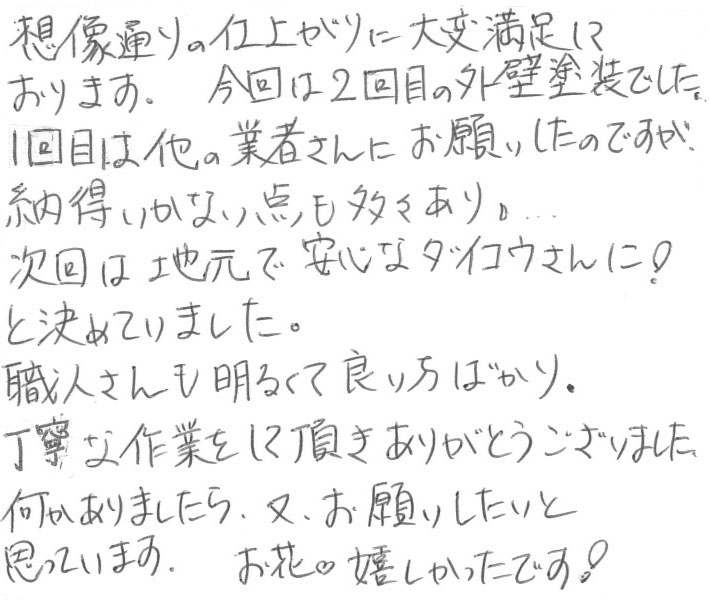 想像通りの仕上がりに大変満足して
おります。 今回は2回目の外壁塗装でした。
1回目は他の業者さんにお願いしたのですが、
納得いかない点も多々あり、…
次回は地元で安心なダイコウさんに!
と決めていました。
職人さんも明るくて良い方ばかり。
丁寧な作業をして頂きありがとうございました。
何かありましたら、又、お願いしたいと
思っています。 お花♡嬉しかったです!